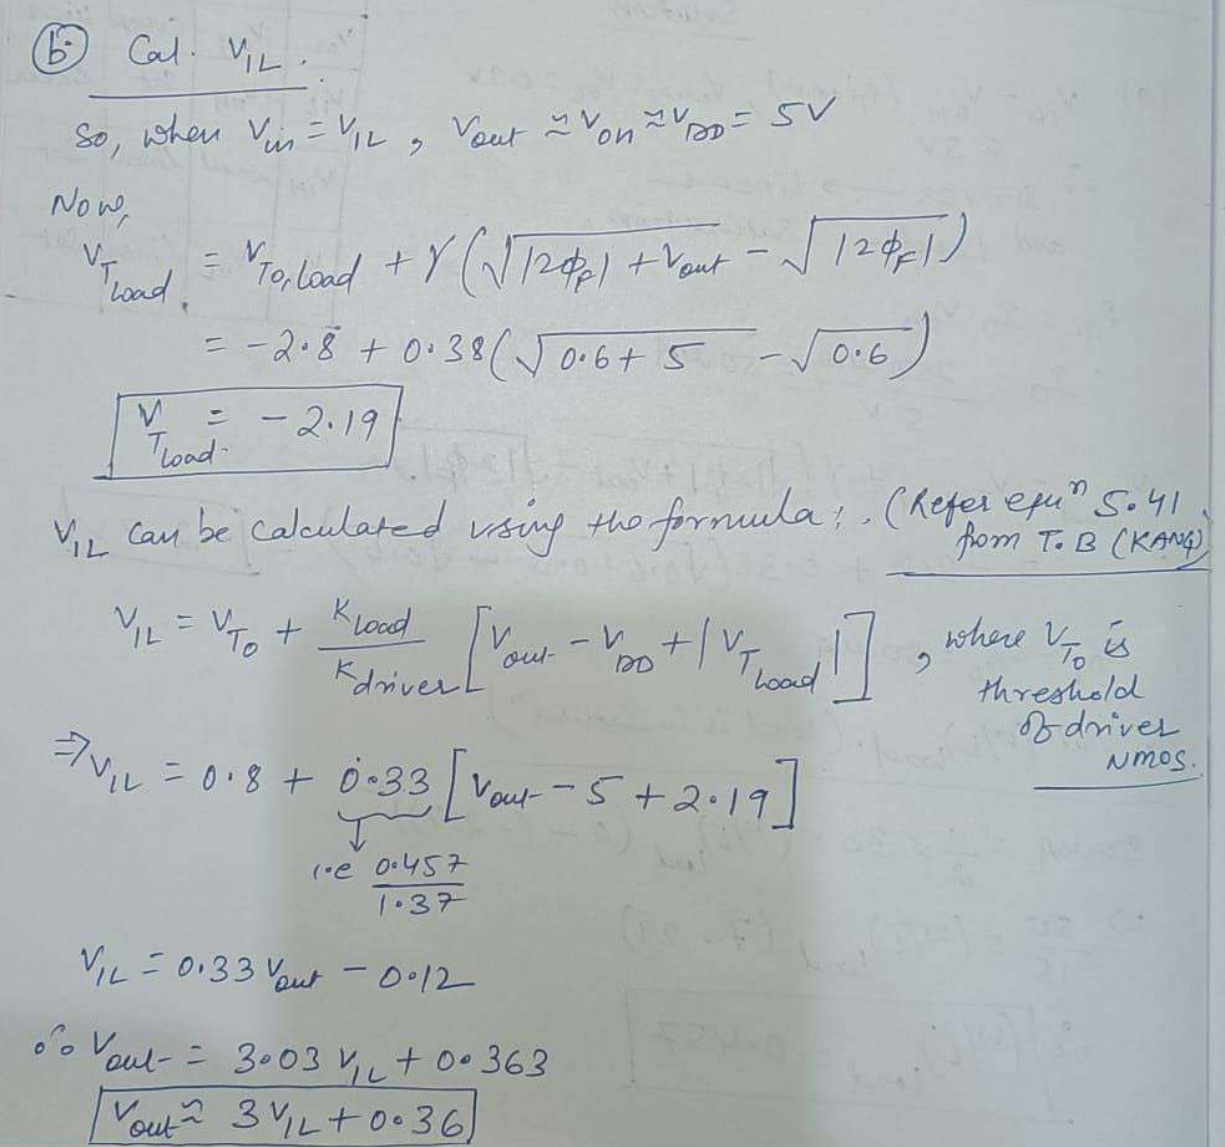 (b) Cal. V_IL.
So, when V_in = V_IL, V_out ≈ V_OH ≈ V_DD = 5V
Now,
V_T Load. = V_T0,Load + γ(√(|2φ_F| + V_out) - √|2φ_F|)
= -2.8 + 0.38(√(0.6 + 5) - √0.6)
V_T Load. = -2.19
V_IL can be calculated using the formula; (Refer equⁿ 5.41
from T.B (KANG)
V_IL = V_T0 + K_Load / K_driver [V_out - V_DD + |V_T Load|], where V_T0 is
threshold
of driver
NMOS.
⇒ V_IL = 0.8 + 0.33 [V_out - 5 + 2.19]
i.e 0.457 / 1.37
V_IL = 0.33 V_out - 0.12
∴ V_out = 3.03 V_IL + 0.363
V_out ≈ 3 V_IL + 0.36